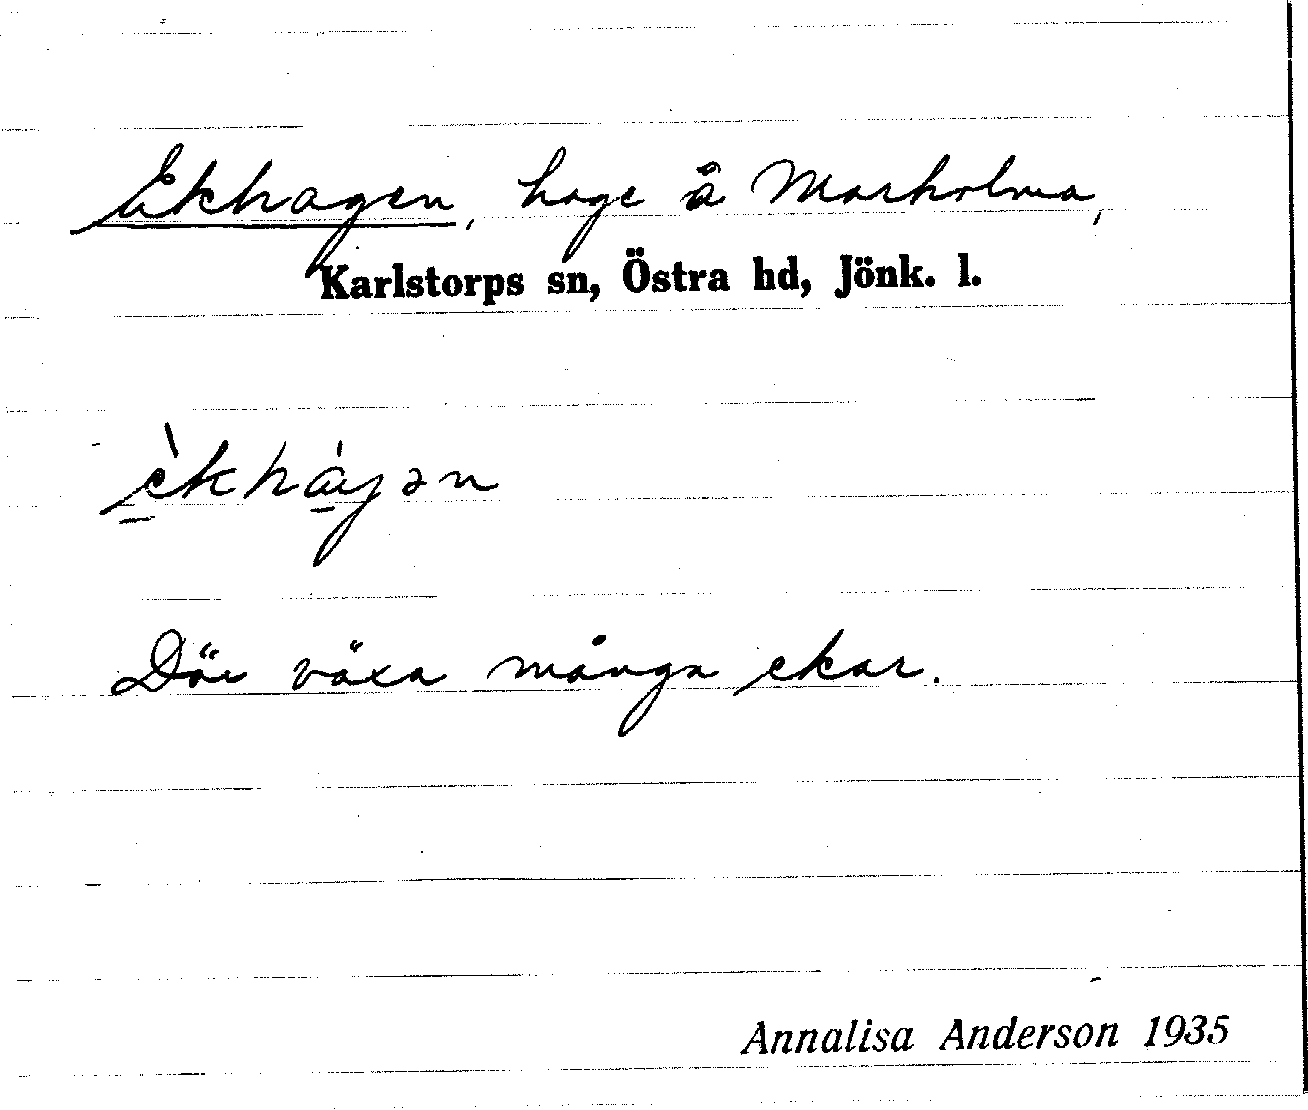 Ekhagen, hage å Marholma,
Karlstorps sn, Östra hd, Jönk. l.
èkháγən
Där växa många ekar.
Annalisa Anderson 1935